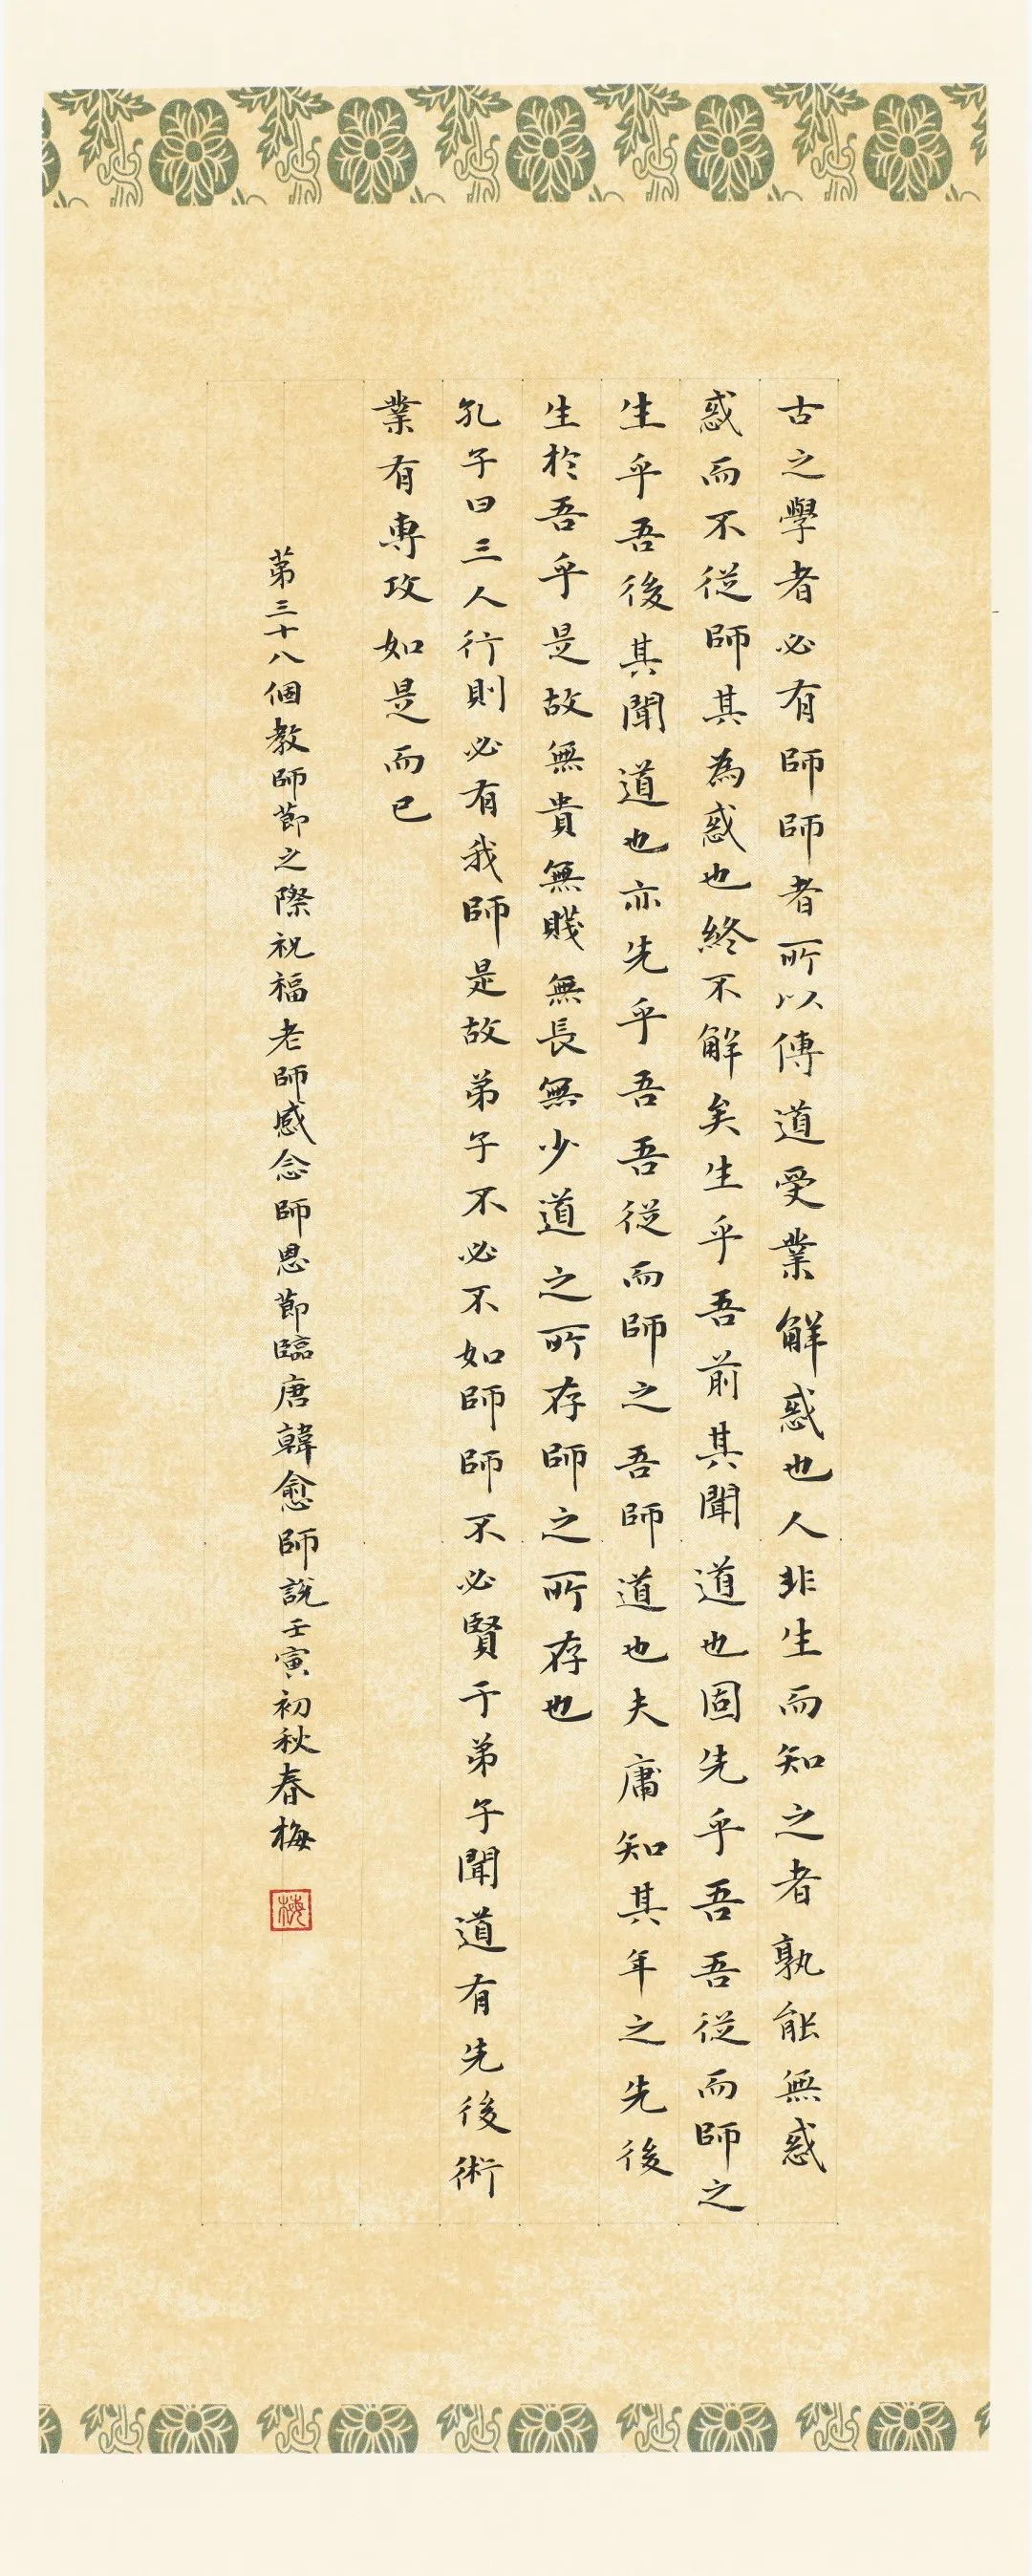 古之學者必有師師者所以傳道受業解惑也人非生而知之者孰能無惑
惑而不從師其為惑也終不解矣生乎吾前其聞道也固先乎吾吾從而師之
生乎吾後其聞道也亦先乎吾吾從而師之吾師道也夫庸知其年之先後
生於吾乎是故無貴無賤無長無少道之所存師之所存也
孔子曰三人行則必有我師是故弟子不必不如師師不必賢于弟子聞道有先後術
業有專攻如是而已
第三十八個教師節之際祝福老師感念師恩節臨唐韓愈師說壬寅初秋春梅
梅